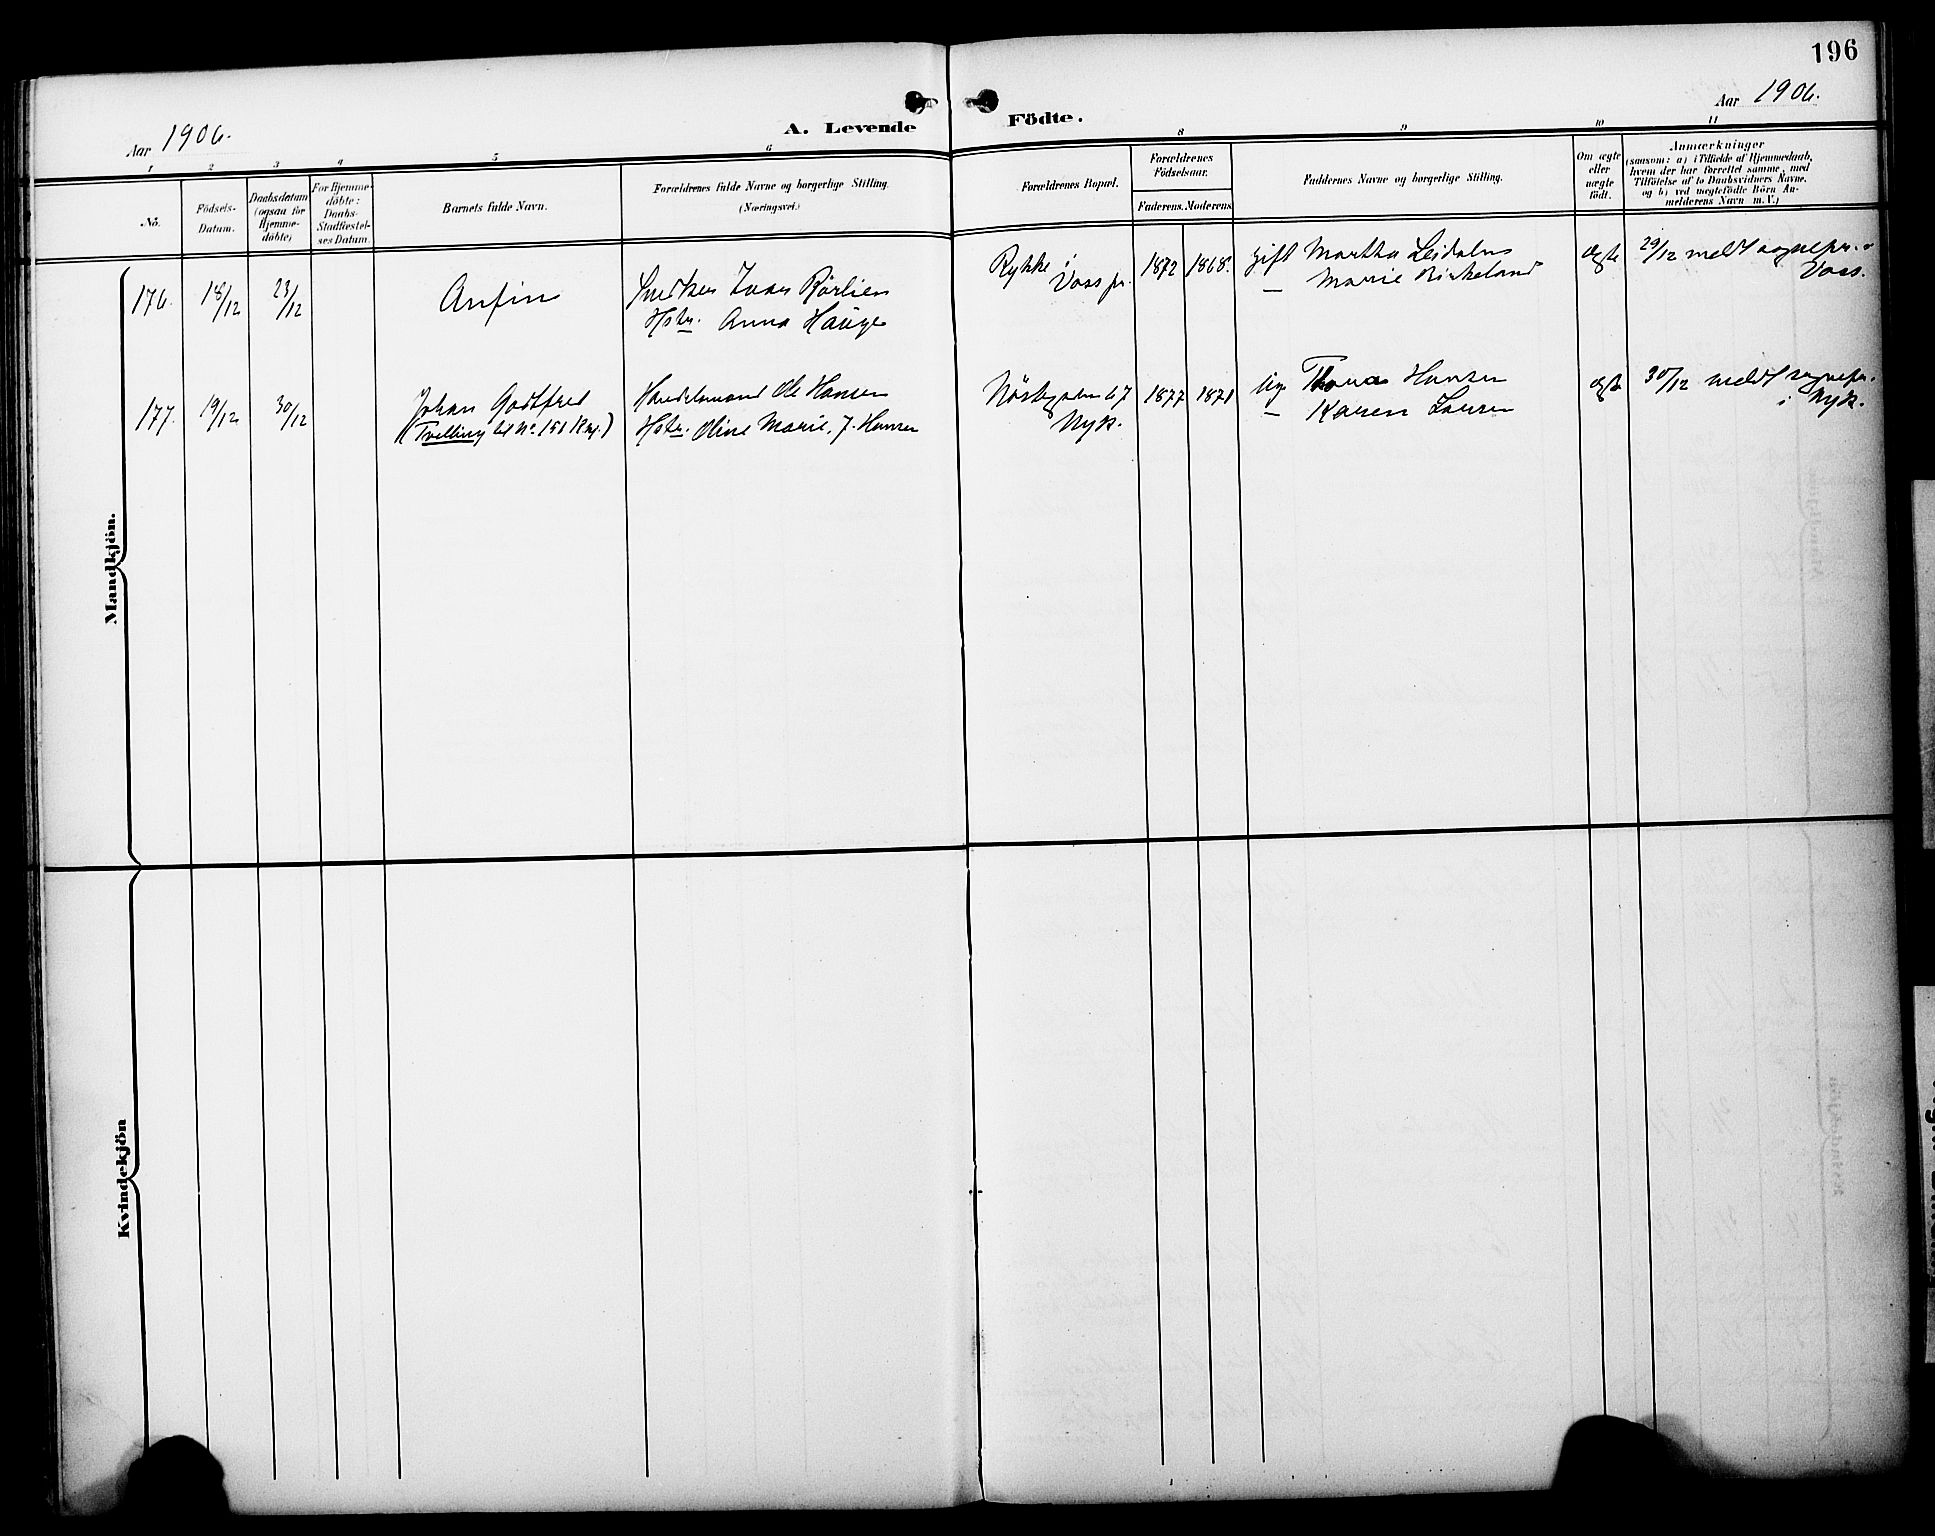 196
Aar 1906.
A. Levende Födte.
Aar 1906.
1 2 3 4 5 6 8 9 10 11
No.
Födsels-
Datum.
Daabsdatum
(ogsaa for
Hjemme-
döbte)
For Hjemme-
döbte:
Daabs-
Stadfæstel-
ses Datum
Barnets fulde Navn.
Forældrenes fulde Navne og borgerlige Stilling.
(Næringsvei.)
Forældrenes Bopæl.
Forældrenes
Födselsaar.
Faderens. Moderens
Faddernes Navne og borgerlige Stilling.
Om ægte
eller
uægte
födt.
Anmærkninger
(saasom: a) i Tilfælde af Hjemmedaab,
hvem der har forrettet samme, med
Tilföielse af to Daabsvidners Navne.
og b) ved uægtefödte Börn An-
melderens Navn m. V.)
Mandkjön.
176. 18/12 23/12
Anfin
Snedker Ivar Rørlien
Hstr. Anna Hauge
Rykke i
Voss pr.
1872 1868.
gift Martha
— Marie Birkeland
ægte
29/12 meldt sognepr.
Voss.
177. 19/12 30/12
Johan Godtfred
(Tvilling til No 151 Kvj.)
Handelsmand Ole Hansen
Hstr. Oline Marie, J. Hansen
67
Nyk.
1877 1871
Hansen
— Karen Larsen
ægte
30/12 meldt sognepr.
i Nyk.
Kvindekjön